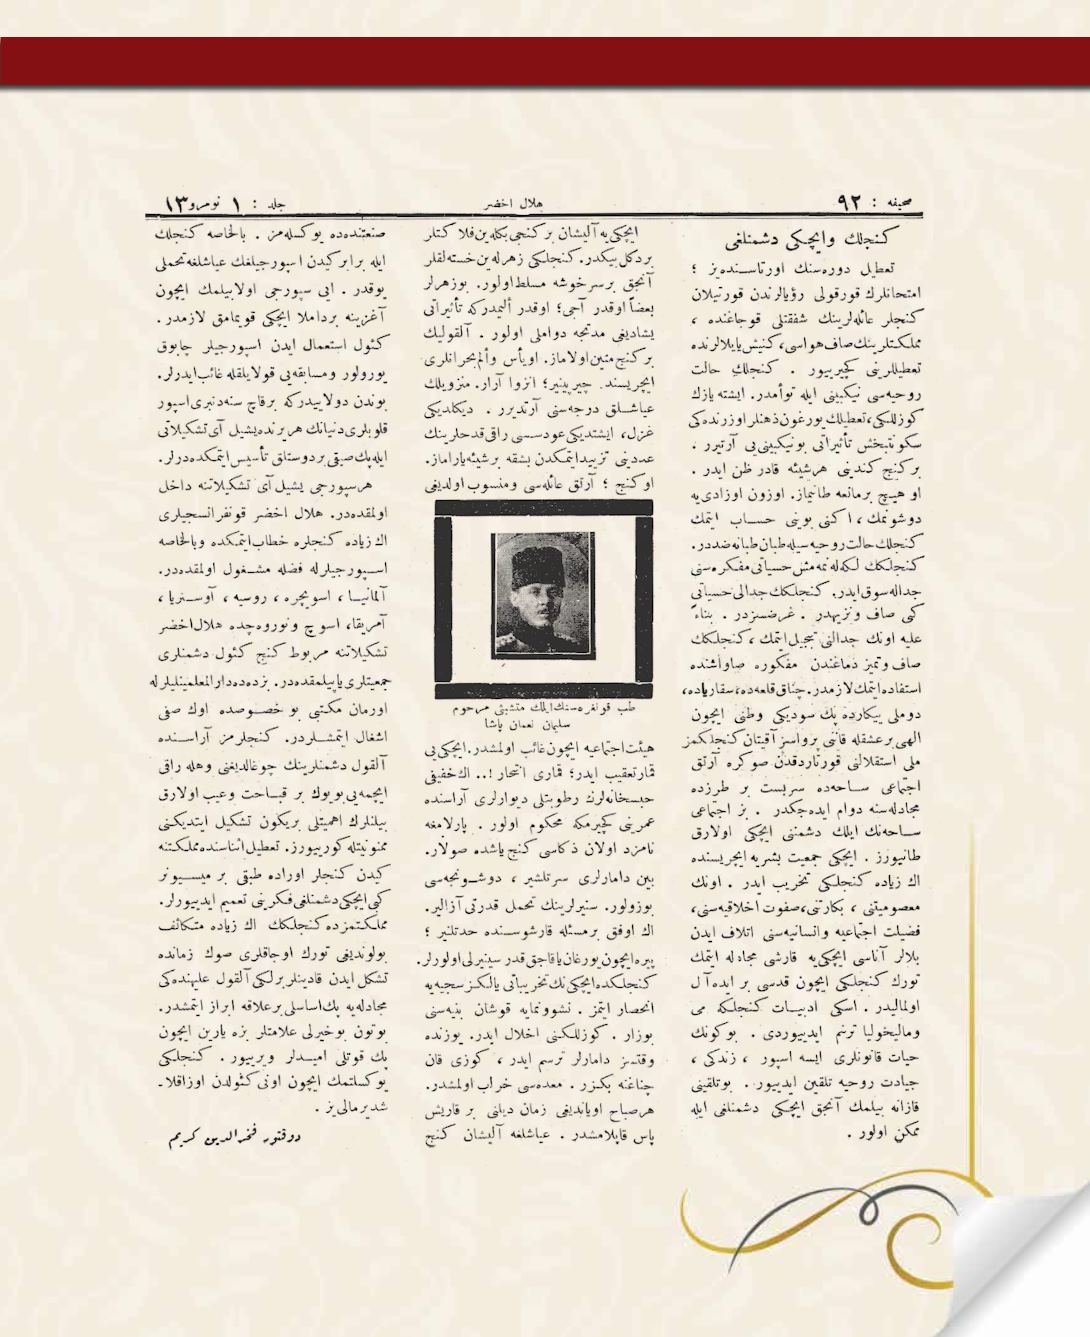 صحیفه : ٩٢
هلال اخضر
جلد : ١ نومرو ١٣
كنجلك وایچكی دشمنلغی
تعطیل دوره‌سنك اورتاسنده‌یز ؛
امتحانلرك قورقولی رؤیالرندن قورتیلان
كنجلر عائله‌لرینك شفقتلی قوجاغنده ،
مملكتلرینك صاف هواسی، كنیش یایلالرنده
تعطیللرینی كچیرییور . كنجلك حالت
روحیه‌سی نیكبینی ایله توأمدر. ایشته یازك
كوزللكی، تعطیلك یورغون ذهنلر اوزرنده‌كی
سكونتبخش تأثیراتی بو نیكبینی یی آرتیرر .
بر كنج كندینی هرشیئه قادر ظن ایدر .
او هیچ برمانعه طانیماز. اوزون اوزادی‌یه
دوشونمك ، اكنی بوینی حساب ایتمك
كنجلك حالت روحیه‌سیله طبان طبانه ضددر.
كنجلكك لكه‌لنمه‌مش حسیاتی مفكره‌سنی
جداله سوق ایدر. كنجلكك جدالی حسیاتی
كبی صاف ونزیهدر . غرضسزدر . بناءً
علیه اونك جدالنی تبجیل ایتمك ، كنجلكك
صاف وتمیز دماغندن مفكوره صاواشنده
استفاده ایتمك لازمدر. چناق قلعه‌ده، سقاریاده،
دوملی پیكارده پك سودیكی وطنی ایچون
الهی بر عشقله قاننی پرواسز آقیتان كنجلكمز
ملی استقلالنی قورتاردقدن صوكره آرتق
اجتماعی ساحه‌ده سربست بر طرزده
مجادله‌سنه دوام ایده‌جكدر . بز اجتماعی
ساحه‌نك ایلك دشمننی ایچكی اولارق
طانیورز . ایچكی جمعیت بشریه ایچریسنده
اك زیاده كنجلكی تخریب ایدر . اونك
معصومیتنی ، بكارتنی، صفوت اخلاقیه‌سنی،
فضیلت اجتماعیه وانسانیه‌سنی اتلاف ایدن
بلالر آناسی ایچكی‌یه قارشی مجادله ایتمك
تورك كنجلكی ایچون قدسی بر ایده‌آل
اولمالیدر . اسكی ادبیات كنجلكه می
ومالیخولیا ترنم ایدییوردی . بوكونك
حیات قانونلری ایسه اسپور ، زندكی ،
جیادت روحیه تلقین ایدییور . بو تلقینی
قازانه بیلمك آنجق ایچكی دشمنلغی ایله
ممكن اولور .
ایچكی‌یه آلیشان بر كنجی بكله‌ین فلاكتلر
بر دكل بیكدر. كنجلكی زهرله‌ین خسته‌لقلر
آنجق بر سرخوشه مسلط اولور. بو زهرلر
بعضاً اوقدر آجی؛ اوقدر ألیمدركه تأثیراتی
یشادیغی مدتجه دواملی اولور . آلقولیك
بر كنج متین اولاماز. او یأس وألم بحرانلری
ایچریسنده چیرپینیر؛ انزوا آرار. منزویلك
عیاشلق درجه‌سنی آرتدیرر . دیكلدیكی
غزل، ایشتدیكی عود سسی راقی قدحلرینك
عددینی تزیید ایتمكدن بشقه بر شیئه یاراماز.
او كنج ؛ آرتق عائله‌سی ومنسوب اولدیغی
طب قونغره‌سنك ایلك متشبثی مرحوم
سلیمان نعمان پاشا
هیئت اجتماعیه ایچون غائب اولمشدر. ایچكی‌یی
قمار تعقیب ایدر؛ قماری انتحار !.. اك خفیفی
حبسخانه‌لرك رطوبتلی دیوارلری آراسنده
عمرینی كچیرمكه محكوم اولور . پارلامغه
نامزد اولان ذكاسی كنج یاشده صولار.
بین دامارلری سرتلشیر ، دوشونجه‌سی
بوزولور. سنیرلرینك تحمل قدرتی آزالیر.
اك اوفق بر مسئله قارشوسنده حدتلنیر ؛
پیره ایچون یورغان یاقاجق قدر سینیرلی اولورلر.
كنجلكده ایچكی‌نك تخریباتی یالكز سجیه‌یه
انحصار ایتمز . نشوونمایه قوشان بنیه‌سنی
بوزار . كوزللكنی اخلال ایدر. یوزنده
وقتسز دامارلر ترسم ایدر ، كوزی قان
چناغنه بكزر . معده‌سی خراب اولمشدر.
هر صباح اویاندیغی زمان دیلنی بر قاریش
پاس قاپلامشدر . عیاشلغه آلیشان كنج
صنعتنده‌ده یوكسله‌مز . بالخاصه كنجلك
ایله برابر كیدن اسپورجیلغك عیاشلغه تحملی
یوقدر . ایی سپورجی اولابیلمك ایچون
آغزینه بر داملا ایچكی قویمامق لازمدر.
كئول استعمال ایدن اسپورجیلر چابوق
یورولور ومسابقه‌یی قولایلقله غائب ایدرلر.
بوندن دولاییدركه بر قاچ سنه‌دنبری اسپور
قلوبلری دنیانك هر یرنده یشیل آی تشكیلاتی
ایله پك صیقی بر دوستلق تأسیس ایتمكده‌درلر.
هر سپورجی یشیل آی تشكیلاتنه داخل
اولمقده‌در. هلال اخضر قونفرانسجیلری
اك زیاده كنجلره خطاب ایتمكده وبالخاصه
اسپورجیلرله فضله مشغول اولمقده‌در.
آلمانیا ، اسویچره ، روسیه ، آوستریا ،
آمریقا، اسوچ ونوروه‌چده هلال اخضر
تشكیلاتنه مربوط كنج كئول دشمنلری
جمعیتلری یاپیلمقده‌در. بزده‌ده دارالمعلمینلیلرله
اورمان مكتبی بو خصوصده اوك صفی
اشغال ایتمشلردر. كنجلرمز آراسنده
آلقول دشمنلرینك چوغالدیغنی وهله راقی
ایچمه‌یی بویوك بر قباحت وعیب اولارق
بیلنلرك اهمیتلی بر یكون تشكیل ایتدیكنی
ممنونیتله كورییورز. تعطیل اثناسنده مملكتنه
كیدن كنجلر اوراده طبقی بر میسیونر
كبی ایچكی دشمنلغی فكرینی تعمیم ایدییورلر.
مملكتمزده كنجلكك اك زیاده متكاثف
بولوندیغی تورك اوجاقلری صوك زمانده
تشكل ایدن قادینلر برلكی آلقول علیهنده‌كی
مجادله‌یه پك اساسلی بر علاقه ابراز ایتمشدر.
بوتون بو خیرلی علامتلر بزه یارین ایچون
پك قوتلی امیدلر ویرییور . كنجلكی
یوكسلتمك ایچون اونی كئولدن اوزاقلا-
شدیرمالی‌یز .
دوقتور فخرالدین كریم